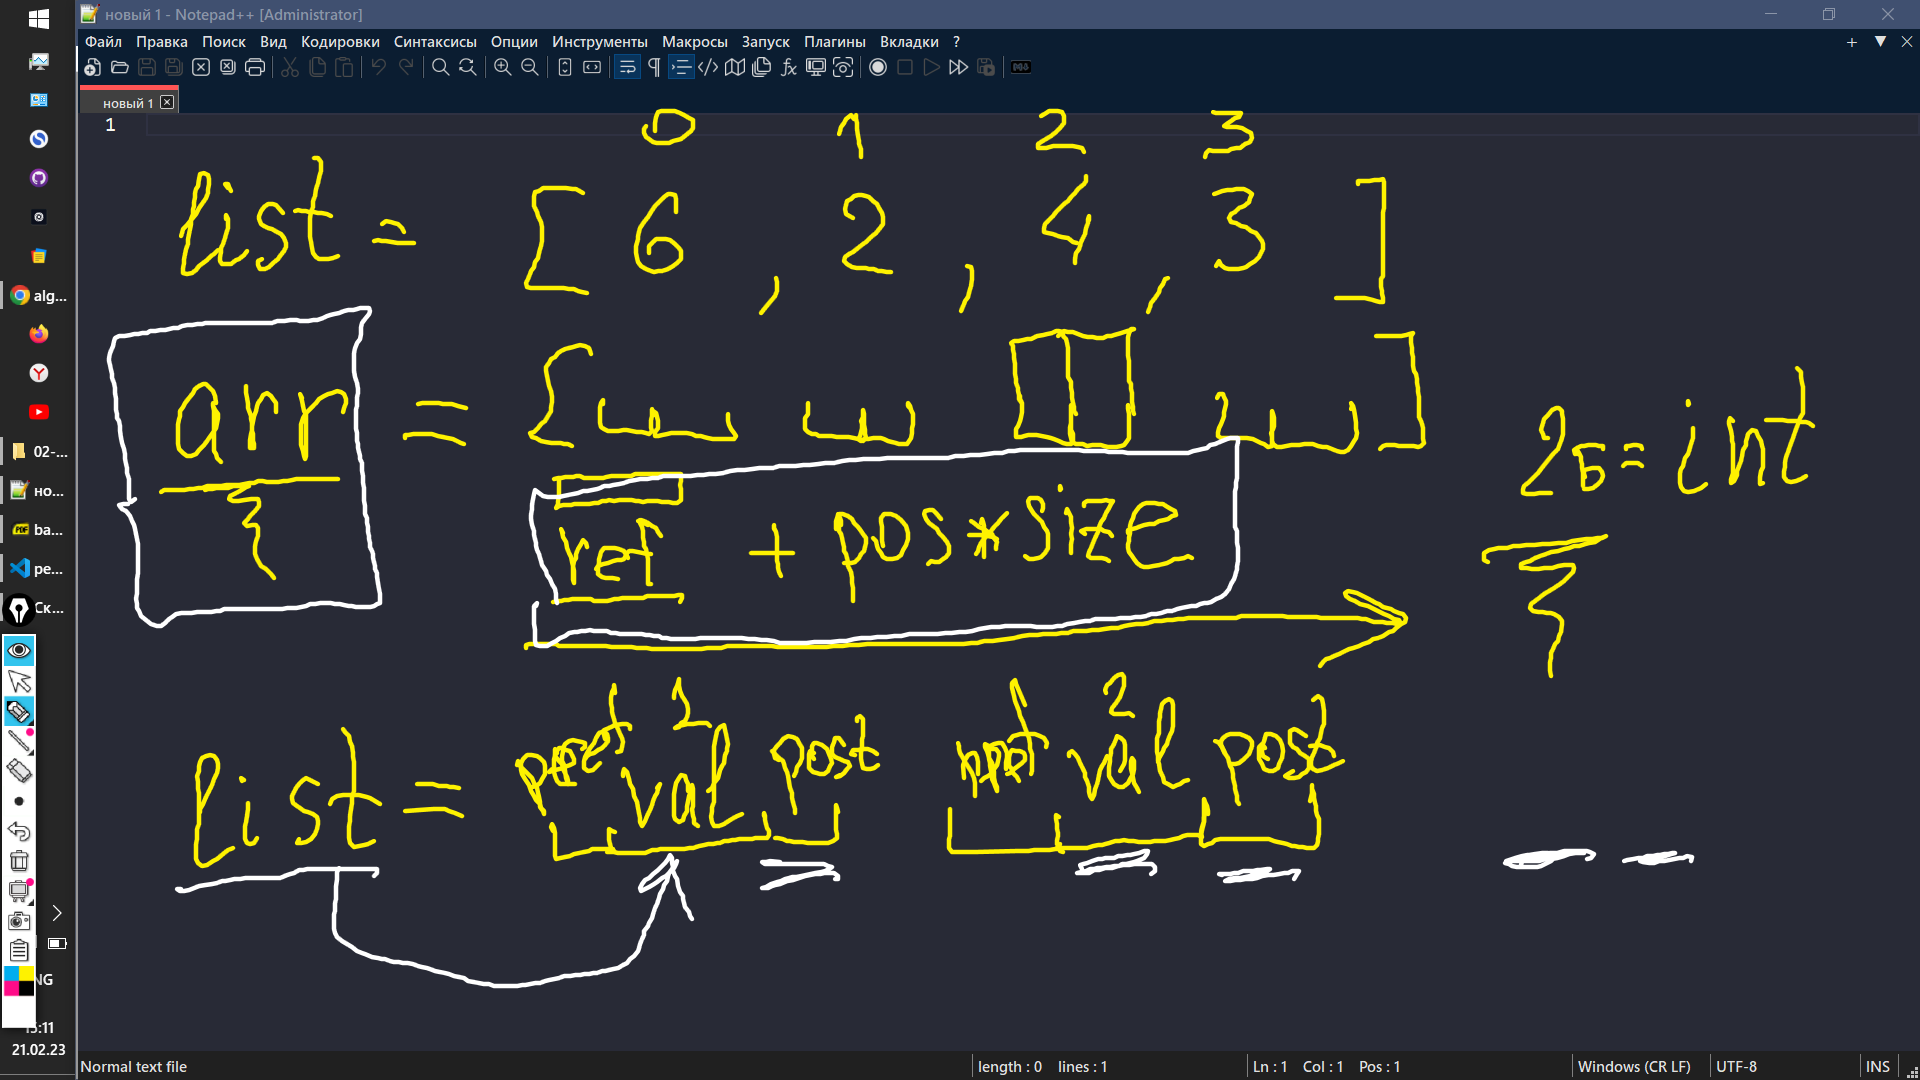 новый 1 - Notepad++ [Administrator]
Файл Правка Поиск Вид Кодировки Синтаксисы Опции Инструменты Макросы Запуск Плагины Вкладки ?
новый 1
1
0 1 2 3
list = [ 6 , 2 , 4 , 3 ]
arr = [ ]
2Б = int
ref + pos * size
1 2
list = val post val post
alg...
02-...
но...
ba...
pe...
Ск...
NG
15:11
21.02.23
Normal text file length : 0 lines : 1 Ln : 1 Col : 1 Pos : 1 Windows (CR LF) UTF-8 INS